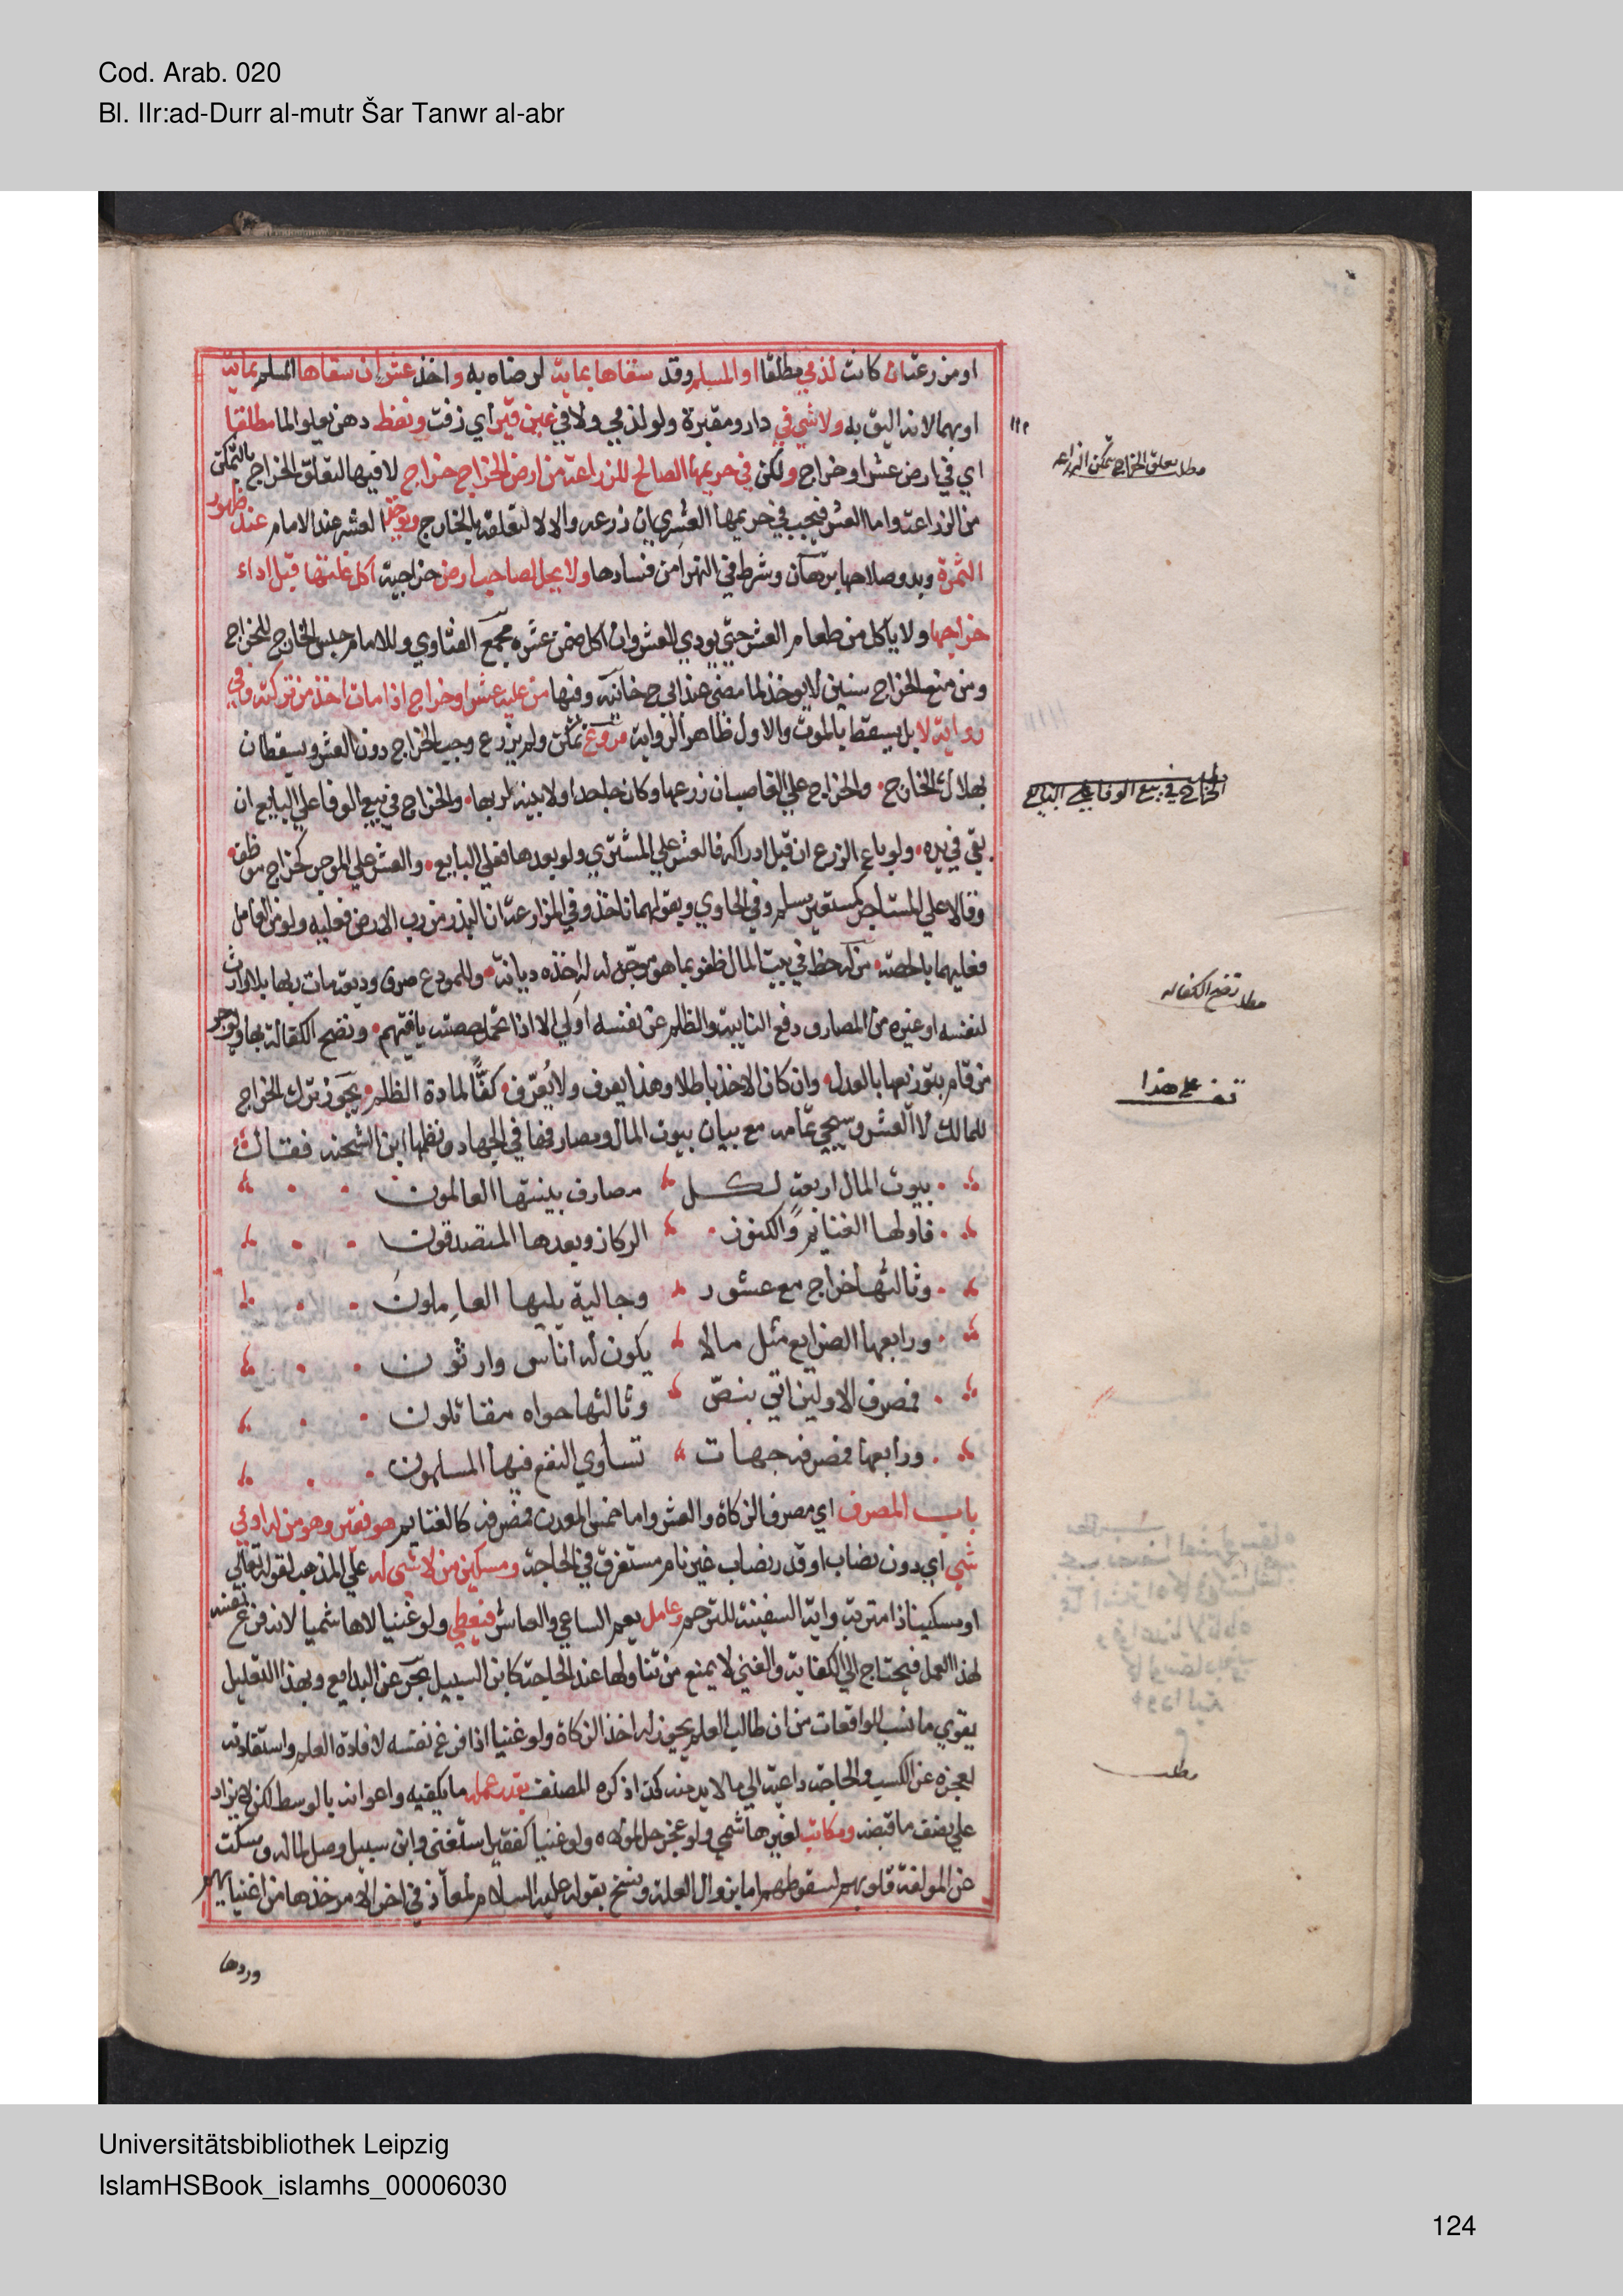 Cod. Arab. 020
Bl. IIr:ad-Durr al-mutr Šar Tanwr al-abr
او مزرعة ان كانت لذمي مطلقا او المسلم وقد سقاها بمايه لرضاه به واخذ عشر ان سقاها المسلم بمايه
او بهما لانه اليق به ولا شي في دار ومقبرة ولو لذمي ولا في عين قير اي زفت ونفط دهن يعلو الما مطلقا
اي في ارض عشر او خراج ولكن في حريمها الصالح للزراعة من ارض الخراج خراج لا فيها لتعلق الخراج بالتمكن
من الزراعة واما العشر فيجب في حريمها العشري ان زرعه والا لا لتعلقه بالخارج ويوخذ العشر عند الامام عند ظهور
الثمرة وبدو صلاحها برهان وشرط في النهر امن فسادها ولا يحل لصاحب ارض خراجية اكل غلتها قبل اداء
خراجها ولا ياكل من طعام العشر حتي يودي العشر وان اكل ضمن عشره مجمع الفتاوي وللامام حبس الخارج للخراج
ومن منع الخراج سنين لا يوخذ لما مضي عند ابي ح خانيه وفيها من عليه عشر او خراج اذا مات اخذ من تركته وفي
رواية لا بل يسقط بالموت والاول ظاهر الرواية فروع تمكن ولم يزرع وجب الخراج دون العشر ويسقطان
بهلاك الخارج والخراج علي الغاصب ان زرعها وكان جاحدا ولا بينه لربها والخراج في بيع الوفا علي البايع ان
بقي في يده ولو باع الزرع ان قبل ادراكه فالعشر علي المشتري ولو بعدها فعلي البايع والعشر علي الموجر كخراج موظف
وقالا علي المستاجر كمستعير مسلم وفي الحاوي وبقولهما ناخذ وفي المزارعة ان البذر من رب الارض فعليه ولو من العامل
فعليهما بالحصة من له حظ في بيت المال ظفر بما هو موجه له له اخذه ديانة وللمودع صرف وديعة مات ربها بلا وارث
لنفسه او غيره من المصارف دفع النايبه والظلم عن نفسه اولي الا اذا تحمل حصته باقيهم وتصح الكفالة بها ويوجر
من قام بتوزيعها بالعدل وان كان الاخذ باطلا وهذا يعرف ولا يُعرّف كفًّا لمادة الظلم يجوز ترك الخراج
للمالك لا العشر وسيجي تمامه مع بيان بيوت المال ومصارفها في الجهاد ونظمها ابن الشحنه فقال
بيوت المال اربعة لكل مصارف بينتها العالمون
فاولها الغنايم والكنوز الركاز وبعدها المتصدقون
وثالثها خراج مع عشور وجالية يليها العاملون
ورابعها الضوايع مثل مالا يكون له اناس وارثون
فمصرف الاولين اتي بنص وثالثها حواه مقاتلون
ورابعها فمصرفه جهات تساوي النفع فيها المسلمون
باب المصرف اي مصرف الزكاة والعشر واما خمس المعدن فمصرفه كالغنايم هو فقير وهو من له ادني
شي اي دون نصاب او قدر نصاب غير نام مستغرق في الحاجة ومسكين من لا شي له علي المذهب لقوله تعالي
او مسكينا ذا متربه واية السفينة للترحم وعامل يعم الساعي والعاشر فيعطي ولو غنيا لا هاشميا لانه فرغ نفسه
لهذا العمل فيحتاج الي الكفاية والغني لا يمنع من تناولها عند الحاجة كابن السبيل بحر عن البدايع وبهذا التعليل
يقوي ما نسب للواقعات من ان طالب العلم يجوز له اخذ الزكاة ولو غنيا اذا فرغ نفسه لافادة العلم واستفادته
لعجزه عن الكسب والحاجة داعية الي مالا بد منه كذا ذكره المصنف بقدر عمله ما يكفيه واعوانه بالوسط لكن لا يزاد
علي نصف ما قبضه ومكاتب لغير هاشمي ولو عجز حل لمولاه ولو غنيا كفقير استغني وابن سبيل وصل لماله وسكت
عن المولفة قلوبهم لسقوطهم اما بزوال العلة او نسخ بقوله عليه السلام لمعاذ في اخر الامر خذها من اغنيايهم
وردها
مطلب تعلق الخراج بتمكن الزراعه
مطلب
الخراج في بيع الوفا علي البايع
مطلب تصح الكفاله
قف علي هذا
مطلب
Universitätsbibliothek Leipzig
IslamHSBook_islamhs_00006030
124